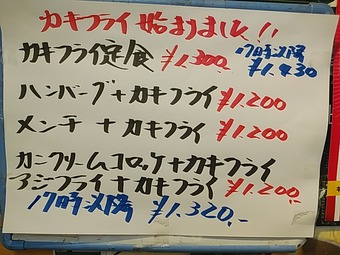 カキフライ始まりました!!
カキフライ定食 ¥1.300- 17時以降 ¥1.430
ハンバーグ+カキフライ ¥1.200
メンチ+カキフライ ¥1.200
カニクリームコロッケ+カキフライ
アジフライ+カキフライ ¥1.200-
17時以降 ¥1.320.-